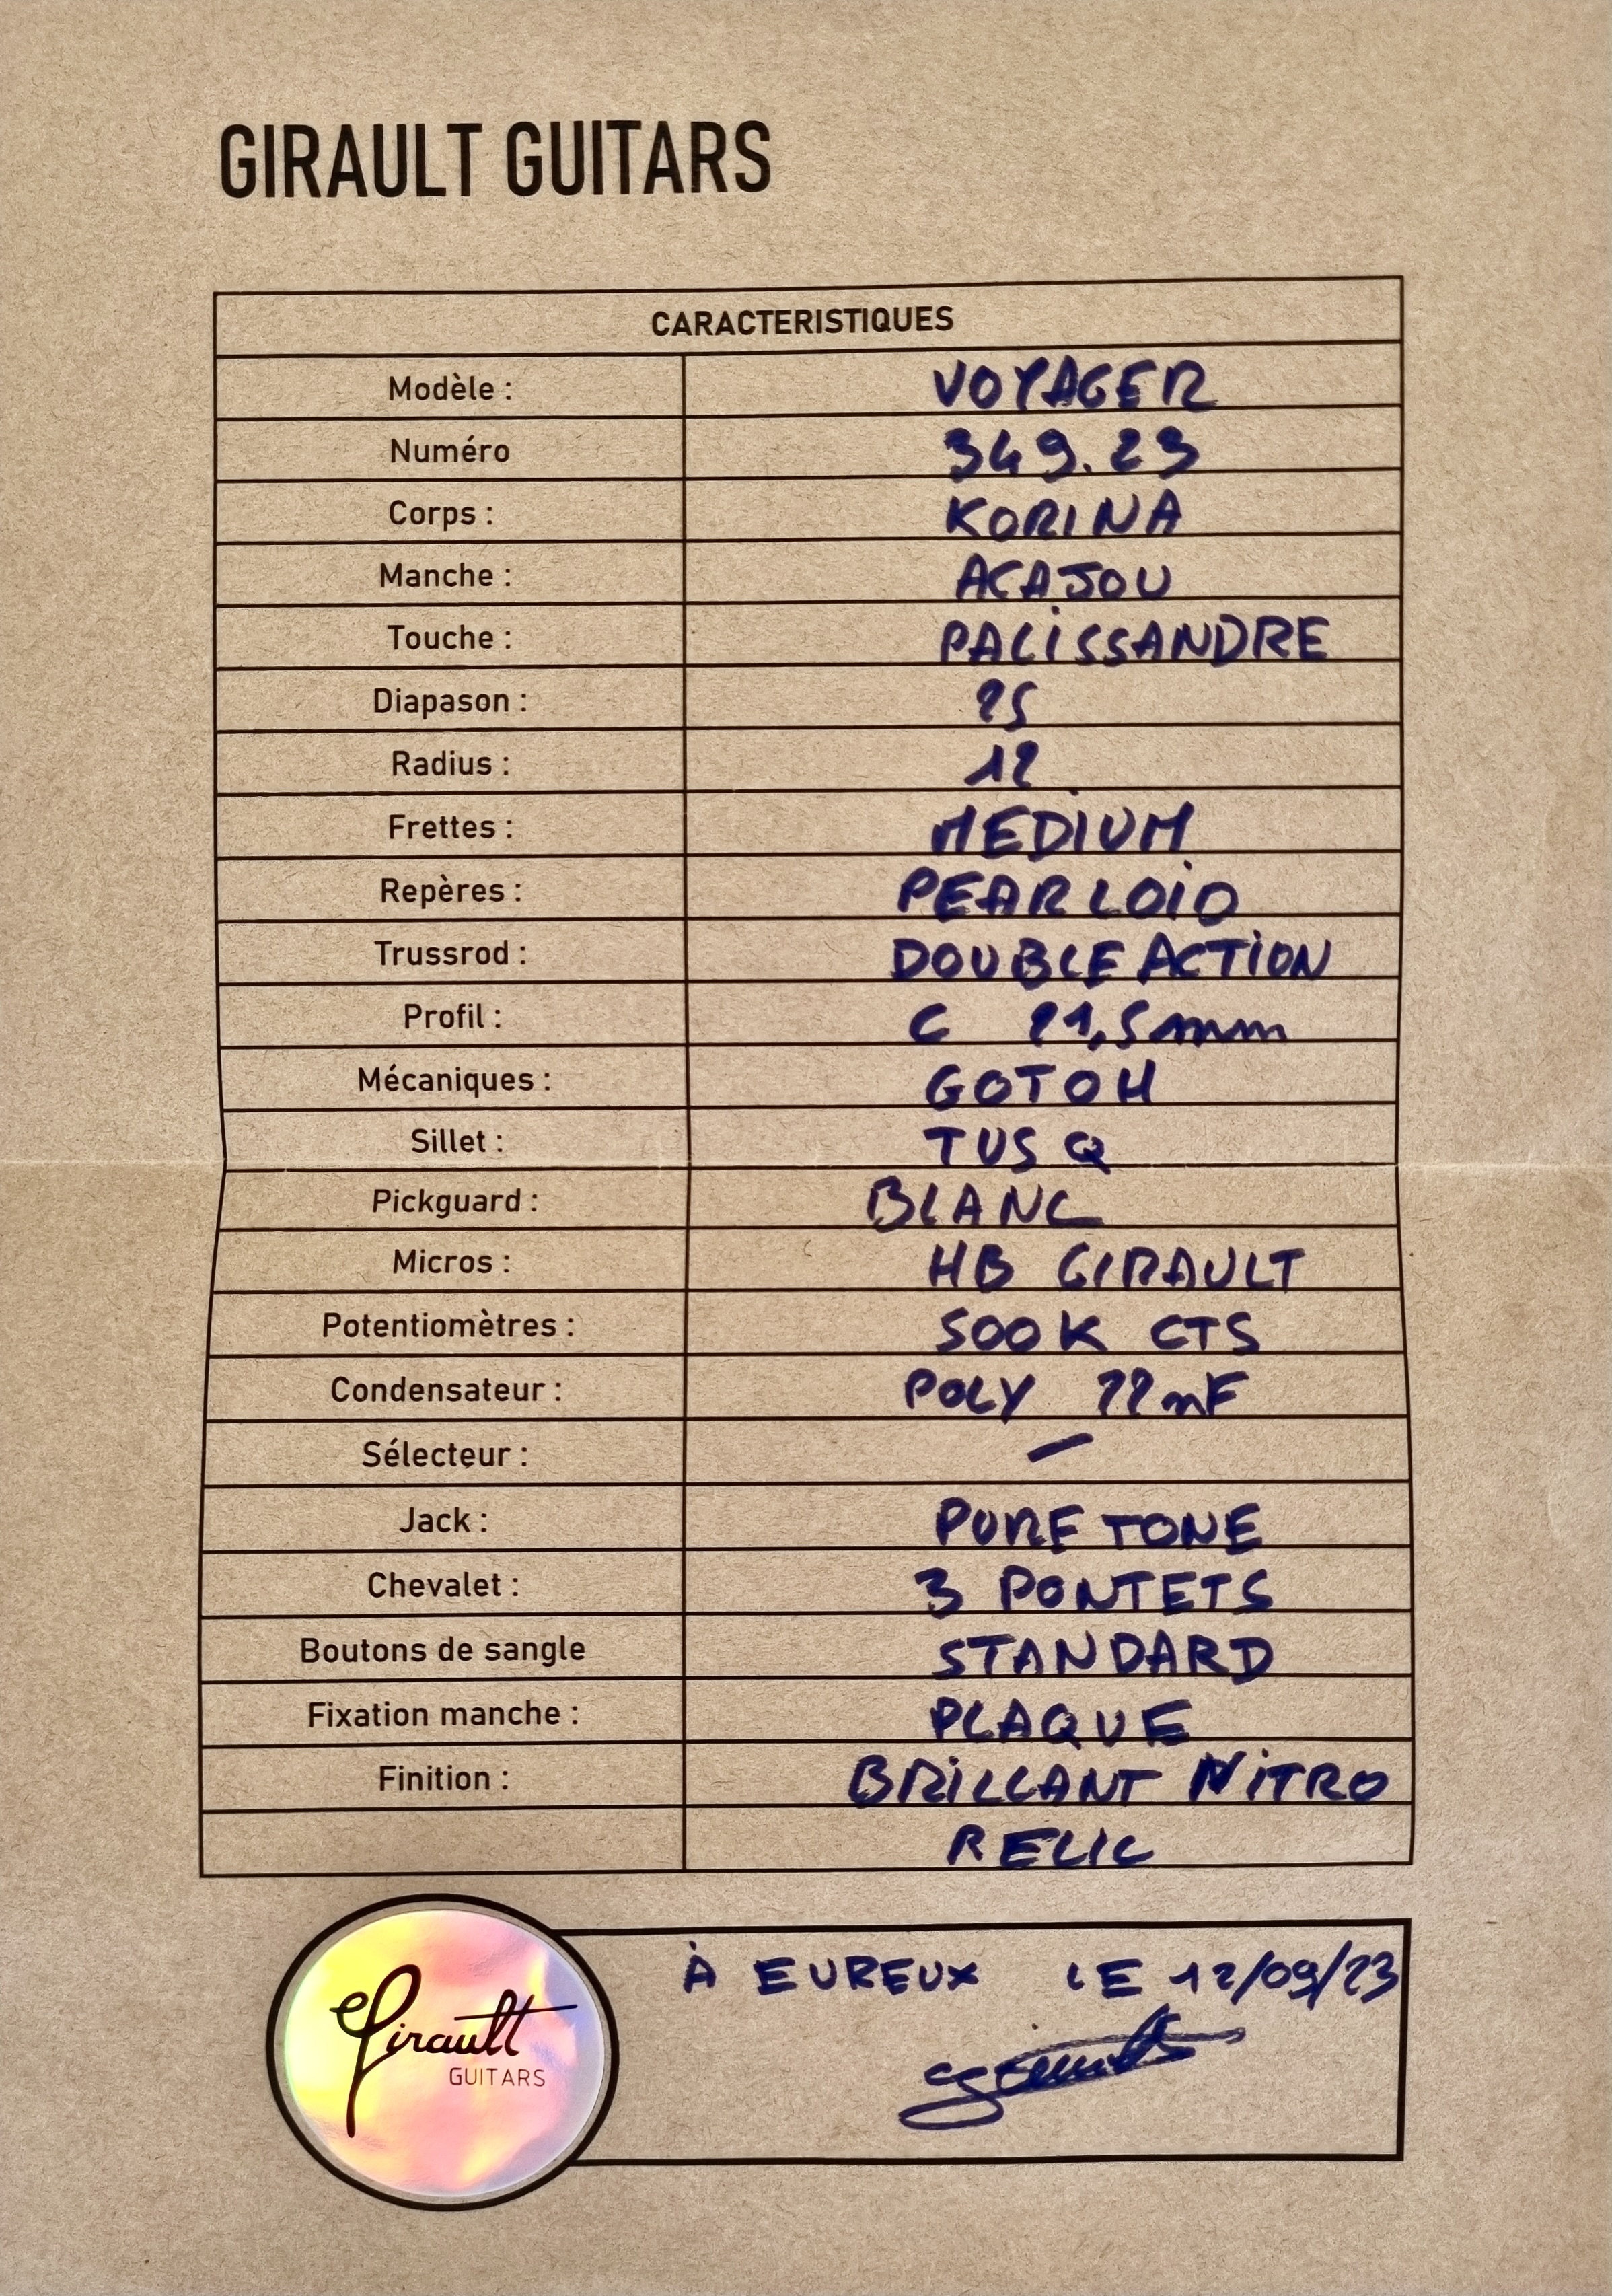 GIRAULT GUITARS
CARACTERISTIQUES
Modèle : VOYAGER
Numéro 349.23
Corps : KORINA
Manche : ACAJOU
Touche : PALiSSANDRE
Diapason : 25
Radius : 12
Frettes : MEDiUM
Repères : PEARLOiD
Trussrod : DOUBLE ACTiON
Profil : C 21,5mm
Mécaniques : GOTOH
Sillet : TUSQ
Pickguard : BLANC
Micros : HB GIRAULT
Potentiomètres : 500K CTS
Condensateur : POLY 22nF
Sélecteur : –
Jack : PURE TONE
Chevalet : 3 PONTETS
Boutons de sangle STANDARD
Fixation manche : PLAQUE
Finition : BRiLLANT NiTRO
RELIC
À EVREUX LE 12/09/23
Girault
GUITARS